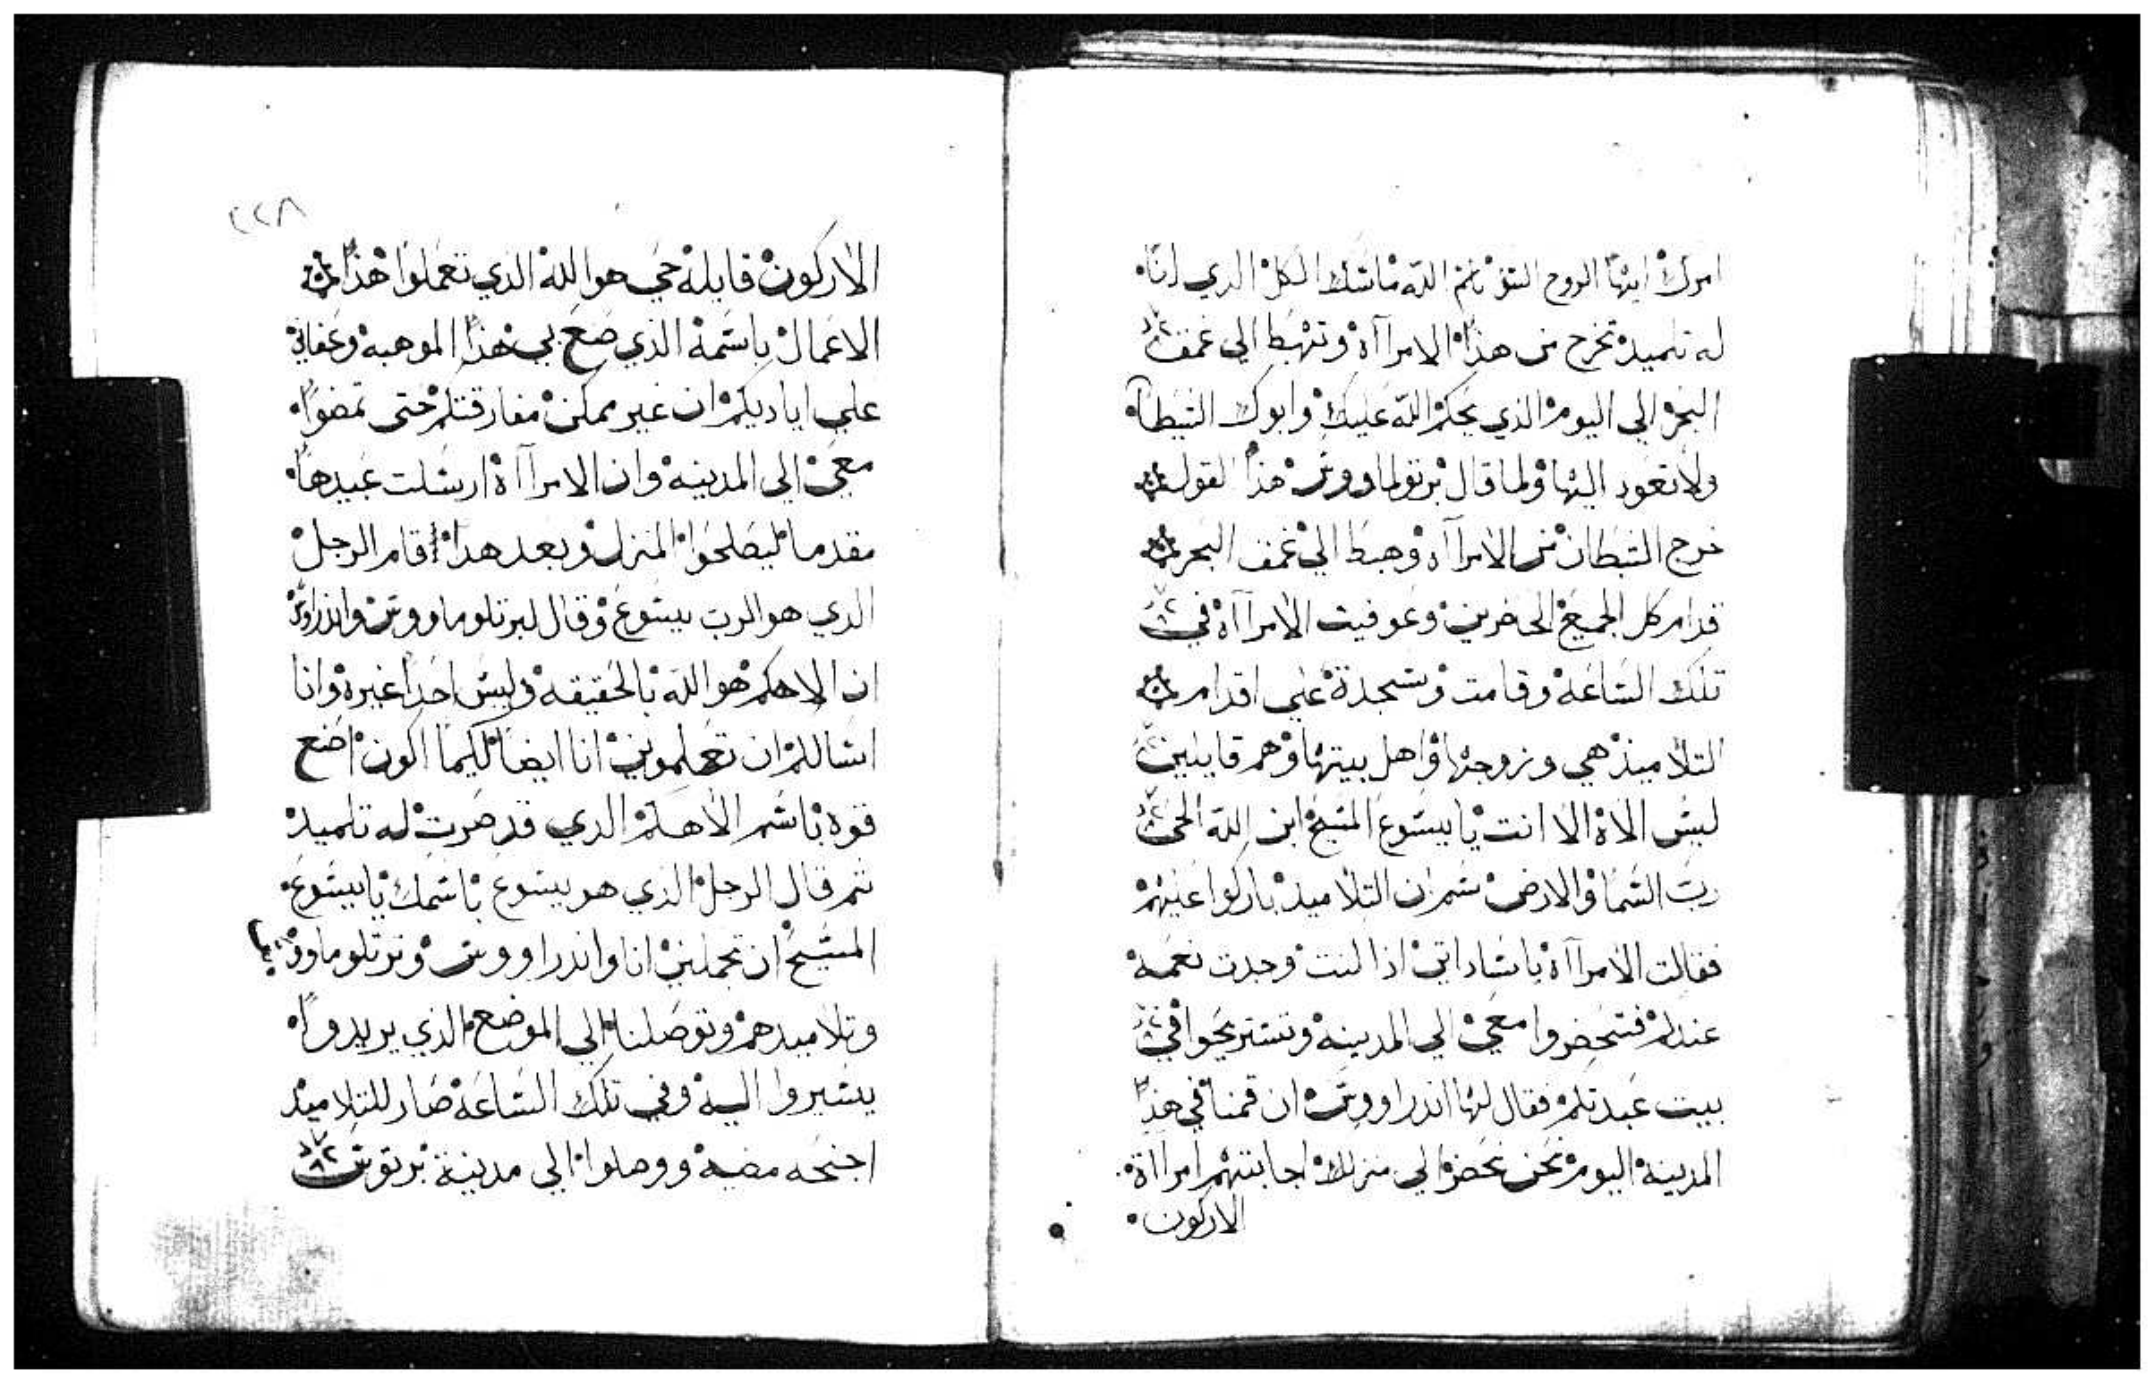 امرك ايتها الروح باسم الله ماسك الكل الدي انا
له تلميد تخرج من هذا الامرآاة وتهبط الي عمق
البحر الي اليوم الذي يحكم الله عليك وابوك الشيطا
ولا تعود اليها ولما قال برتولماووس هذا القول
خرج الشيطان من الامرآاه وهبط الي عمق البحر
قدام كل الجميع الحاضرين وعوفيت الامرآاه في
تلك الساعه وقامت وسجدة علي اقدام
التلاميذ هي وزوجها واهل بيتها وهم قايلين
ليس الاه الا انت يا يسوع المسيح ابن الله الحي
رب السما والارض ثم ان التلاميد باركوا عليهم
فقالت الامرآاة يا ساداتي اذا كنت وجدت نعمه
عندكم فتحضروا معي الي المدينه وتستريحوا في
بيت عبدتكم فقال لها اندراووس ان قمنا في هذا
المدينه اليوم نحن نحضر الي منزلك اجابتهم امرااة
الاركون
٢٢٨
الاركون قايله حي هو الله الذي تعملوا هذا
الاعمال باسمه الذي صنع بي هذا الموهبه وعفاني
علي اياديكم ان غير ممكن مفارقتكم حتى تمضوا
معي الي المدينه وان الامرآاة ارسلت عبيدها
مقدما ليصلحوا المنزل وبعد هدا اقام الرجل
الدي هو الرب يسوع وقال لبرتلوماووس واندراوس
ان الاهكم هو الله بالحقيقه وليس احدا غيره وانا
اسالكم ان تعلموني انا ايضا لكيما اكون اصنع
قوه باسم الاهكم الدي قد صرت له تلميد
ثم قال الرجل الذي هو يسوع باسمك يا يسوع
المسيح ان تحملني انا واندراووس وبرتلوماوو
وتلاميدهم وتوصلنا الي الموضع الذي يريدوا
يسيروا اليه وفي تلك الساعه صار للتلاميد
اجنحه مضيه ووصلوا الي مدينة برتوس